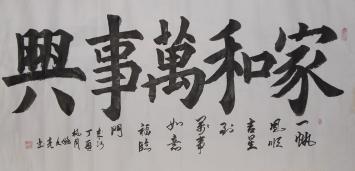 家和萬事興
一帆
風順
吉星
到
萬事
如意
福臨
門
丁酉